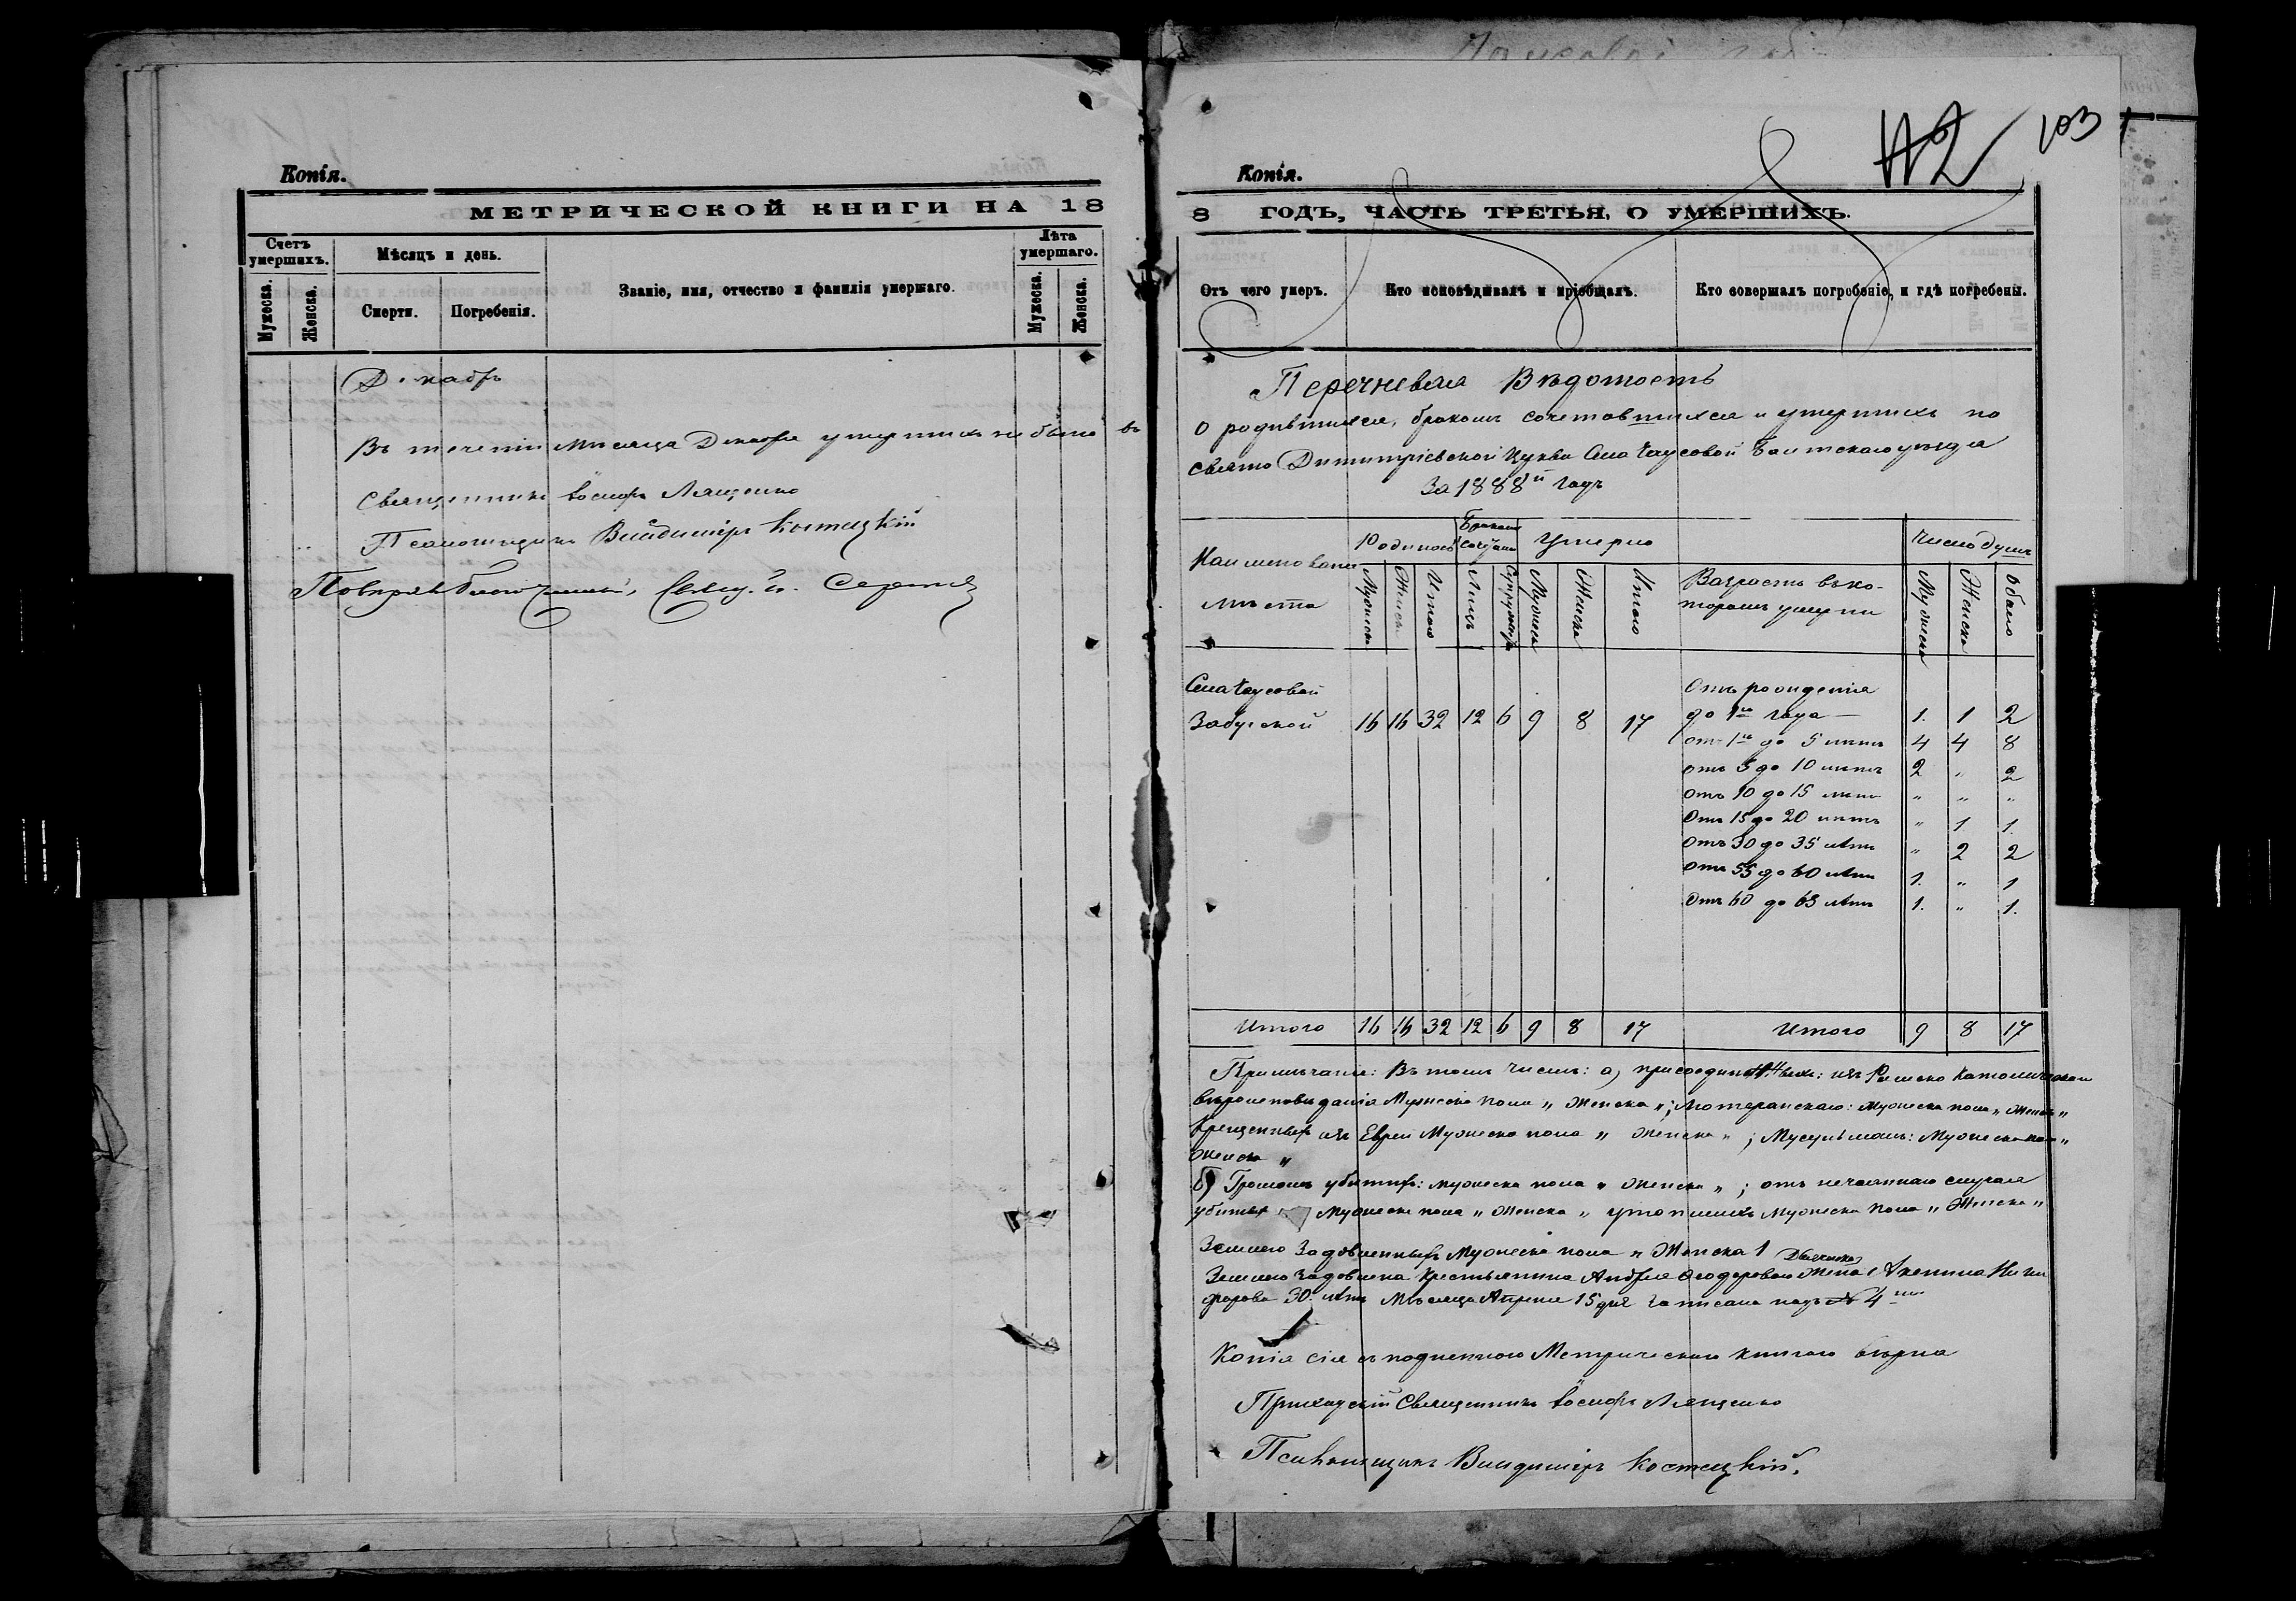 Копія.
МЕТРИЧЕСКОЙ КНИГИ НА 18
Счетъ умершихъ.
Мѣсяцъ и день.
Званіе, имя, отчество и фамилія умершаго.
Лѣта умершаго.
Мужеска.
Женска.
Смерти.
Погребенія.
Мужеска.
Женска.
Декабрь
Въ теченіи мѣсяца Декабря умершихъ не было
Священникъ Іосифъ Лященко
Псаломщикъ Владиміръ Костецкій
Повѣрялъ благочинный, Свящ.
Копія.
112
103
8 ГОДЪ, ЧАСТЬ ТРЕТЬЯ, О УМЕРШИХЪ.
Отъ чего умеръ.
Кто исповѣдывалъ и пріобщалъ.
Кто совершалъ погребеніе, и гдѣ погребены.
Перечневая Вѣдомость
о родившихся, бракомъ сочетавшихся и умершихъ по
Свято Димитріевской Церкви Села Чаусовой Балтскаго уѣзда
За 1888й годъ
Наименованіе мѣста
Родилось
Бракомъ Сочетано
Умерло
Число душъ
Мужеска
Женск.
Итого
Лицъ
Супружествъ
Мужеск
Женска
Итого
Возрастъ въ ко-
торомъ умерли
Мужеска
Женска
Обоего
Села Чаусовой
Забугской 16 16 32 12 6 9 8 17
Отъ рожденія
до 1го года — 1. 1 2
отъ 1го до 5 лѣтъ 4 4 8
отъ 5 до 10 лѣтъ 2 „ 2
отъ 10 до 15 лѣтъ „ „ „
Отъ 15 до 20 лѣтъ „ 1 1.
Отъ 30 до 35 лѣтъ „ 2 2
Отъ 55 до 60 лѣтъ 1. „ 1
Отъ 60 до 65 лѣтъ 1. „ 1.
Итого 16 16 32 12 6 9 8 17 Итого 9 8 17
Примѣчаніе: Въ томъ числѣ: а) присоединенныхъ: изъ Римско Католическаго
вѣроисповѣданія Мужеска пола „ Женска „; Лютеранскаго: Мужеска пола „ Женск „
Крещенныхъ изъ Евреи Мужеска пола „ Женска „; Мусульманъ: Мужеска пола „
Женска „
б) Громомъ убитыхъ: мужеска пола „ Женска „; отъ нечаяннаго случая
убитыхъ Мужеска пола „ Женска „ утопшихъ Мужеска пола „ Женска „
Землею Задавленныхъ Мужеска пола „ Женска 1
Землею Задавлена Крестьянина Андрея Феодорова Жена Акилина Ники
форова 30. лѣтъ Мѣсяца Апрѣля 15 дня записана подъ № 4
Копія сія съ подлинною Метрическою книгою вѣрна
Приходскій Священникъ Іосифъ Лященко
Псаломщикъ Владиміръ Костецкій.